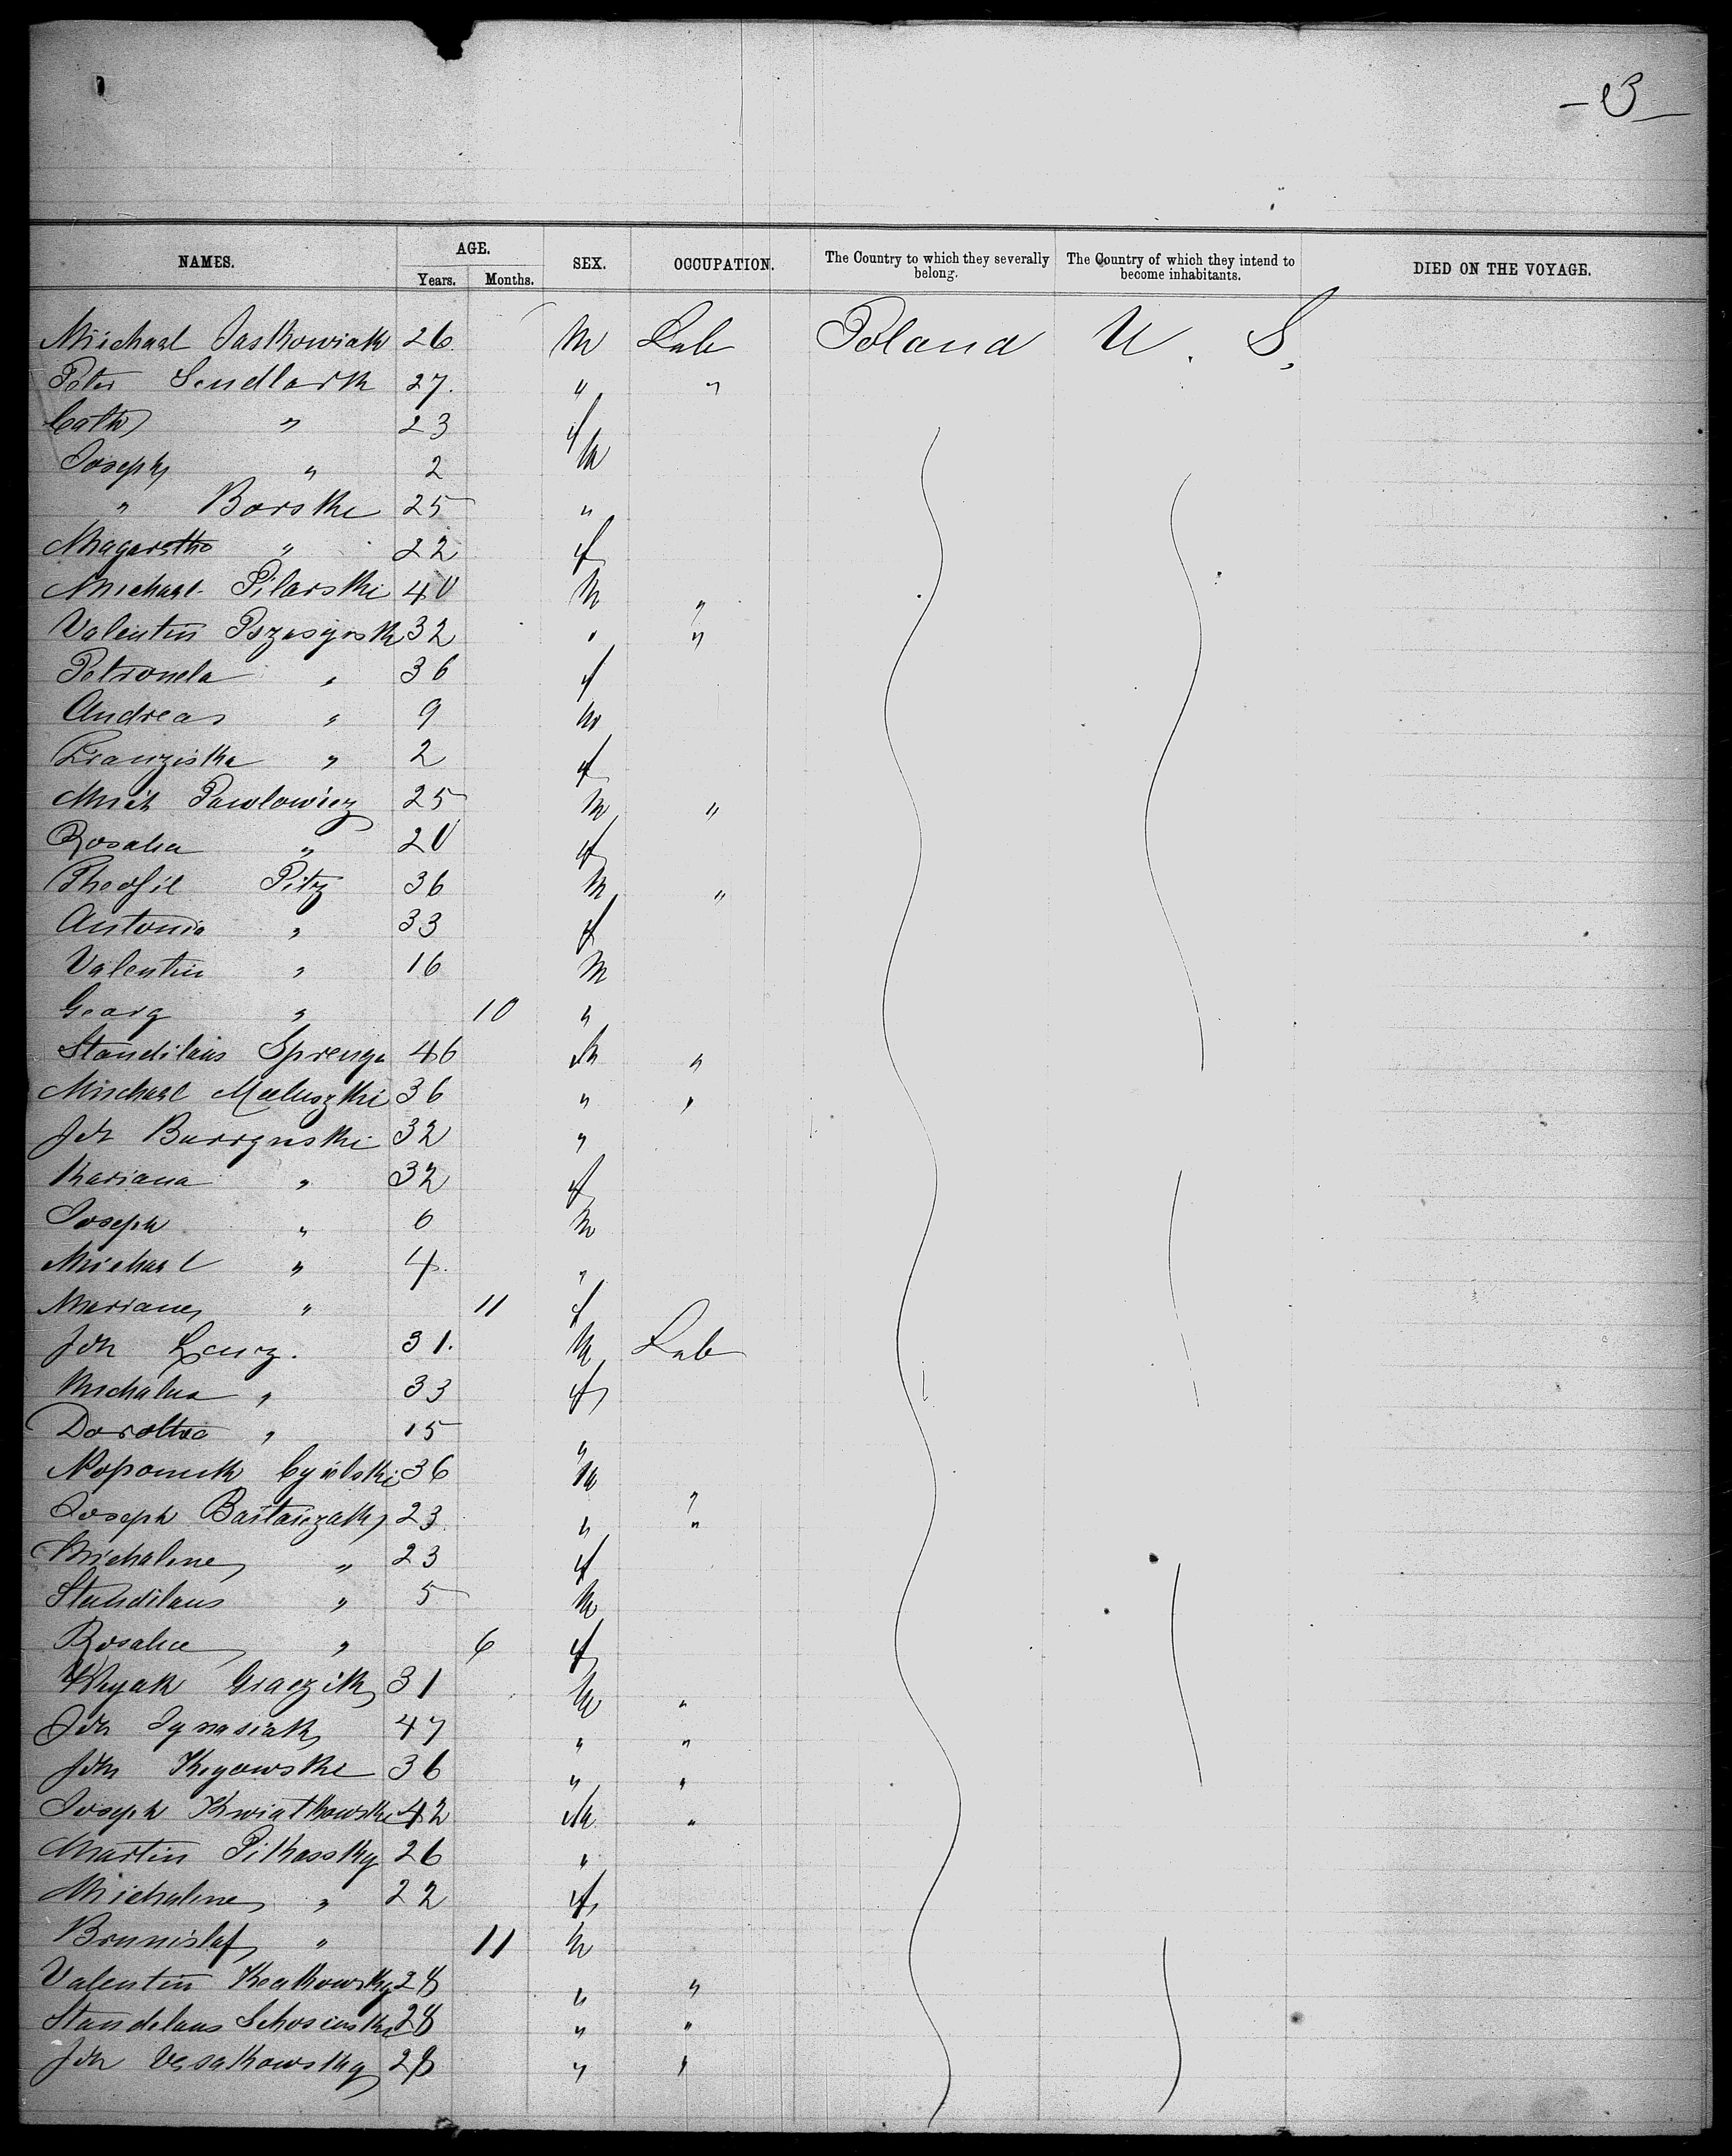 - 3 -
NAMES. AGE. Years. Months. SEX. OCCUPATION. The Country to which they severally belong. The Country of which they intend to become inhabitants. DIED ON THE VOYAGE.
Michael Jaskowiak 26 M Lab Poland U. S.
Peter Sendlark 27. " "
Cath " 23 f
Joseph " 2 M
" Borske 25 "
Magaretha " 22 f
Michael Pilarski 40 M "
Valentin 32 " "
Petronela " 36 f
Andreas " 9 M
Franziska " 2 f
Mich Pawlowicz 25 M "
Rosalia " 20 f
Theofil Pitz 36 M "
Antonia " 33 f
Valentin " 16 M
Georg " 10 "
Standilaus Sprenga 46 M "
Michael 36 " "
Joh 32 "
Mariana " 32 f
Joseph " 6 M
Michael " 4. "
Mariane " 11 f
Joh Lanz. 31. M Lab
Michalina " 33 f
Dorothea " 15 "
Nopomuk 36 M "
Joseph 23 " "
Michaline " 23 f
Standilaus " 5 M
Rosalie " 6 f
Graczik 31 M "
Joh Ignasiak 47 " "
Joh Kryowske 36 " "
Joseph Kwiatkowski 42 M "
Martin Pikassky 26 "
Michaline " 22 f
Brunislaf " 11 M
Valentin Keakowsky 28 " "
Standelaus 28 " "
Joh 28 " "